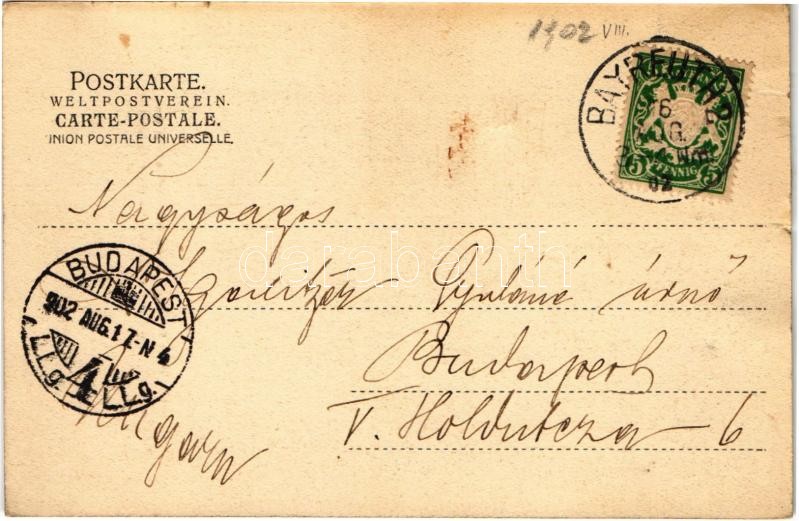 1902 VIII.
POSTKARTE.
WELTPOSTVEREIN.
CARTE-POSTALE.
UNION POSTALE UNIVERSELLE.
BAYREUTH 2
6
AUG.
02
5 PFENNIG 5
Nagyságos
Gyuláné úrnő
Budapest
V. Holdutcza 6
Ungarn
BUDAPEST
902 AUG.17-N 4
4
darabanth